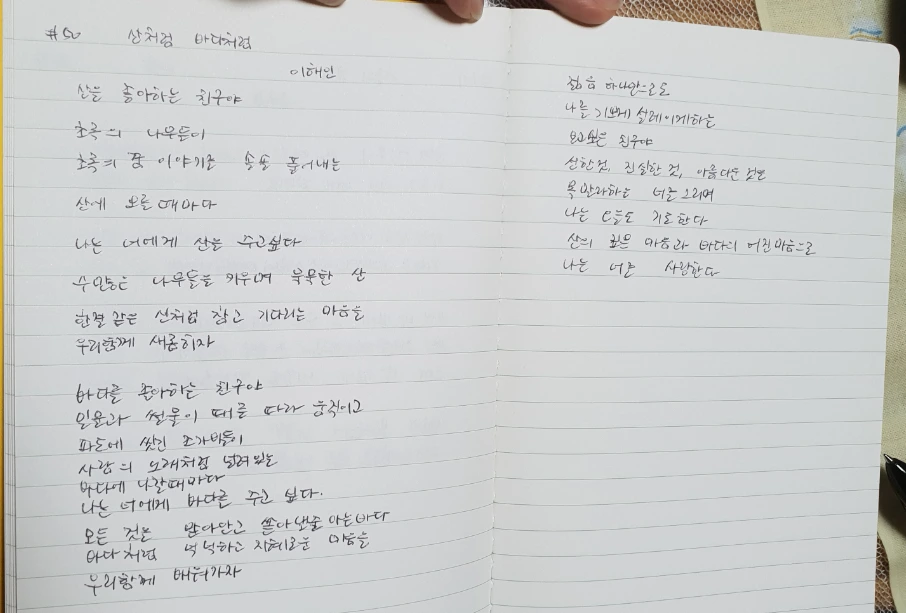 #50 산처럼 바다처럼
이해인
산을 좋아하는 친구야
초록의 나무들이
초록의 꿈 이야기를 솔솔 풀어내는
산에 오를 때마다
나는 너에게 산을 주고싶다
수많은 나무들을 키우며 묵묵한 산
한결 같은 산처럼 참고 기다리는 마음을
우리함께 새롭히자
바다를 좋아하는 친구야
밀물과 썰물이 때를 따라 움직이고
파도에 씻긴 조가비들이
사랑의 노래처럼 널려있는
바다에 나갈때마다
나는 너에게 바다를 주고 싶다.
모든 것을 받아안고 쏟아낼줄 아는바다
바다처럼 넉넉하고 지혜로운 마음을
우리함께 배워가자
젊음 하나만으로도
나를 기쁘게 설레이게하는
보고싶은 친구야
선한것, 진실한 것, 아름다운 것을
목말라하는 너를 그리며
나는 오늘도 기도한다
산의 깊은 마음과 바다의 어진마음으로
나는 너를 사랑한다